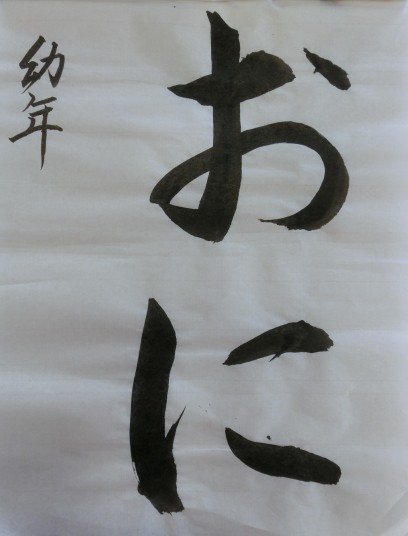 おに
幼年